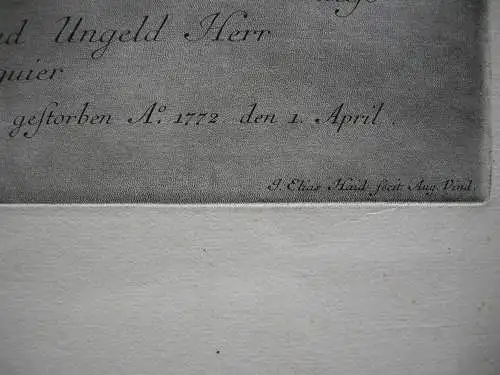 ed Ungeld Herr
quier
geſtorben Aº. 1772 den 1. April.
J. Elias Haid fecit Aug. Vind.